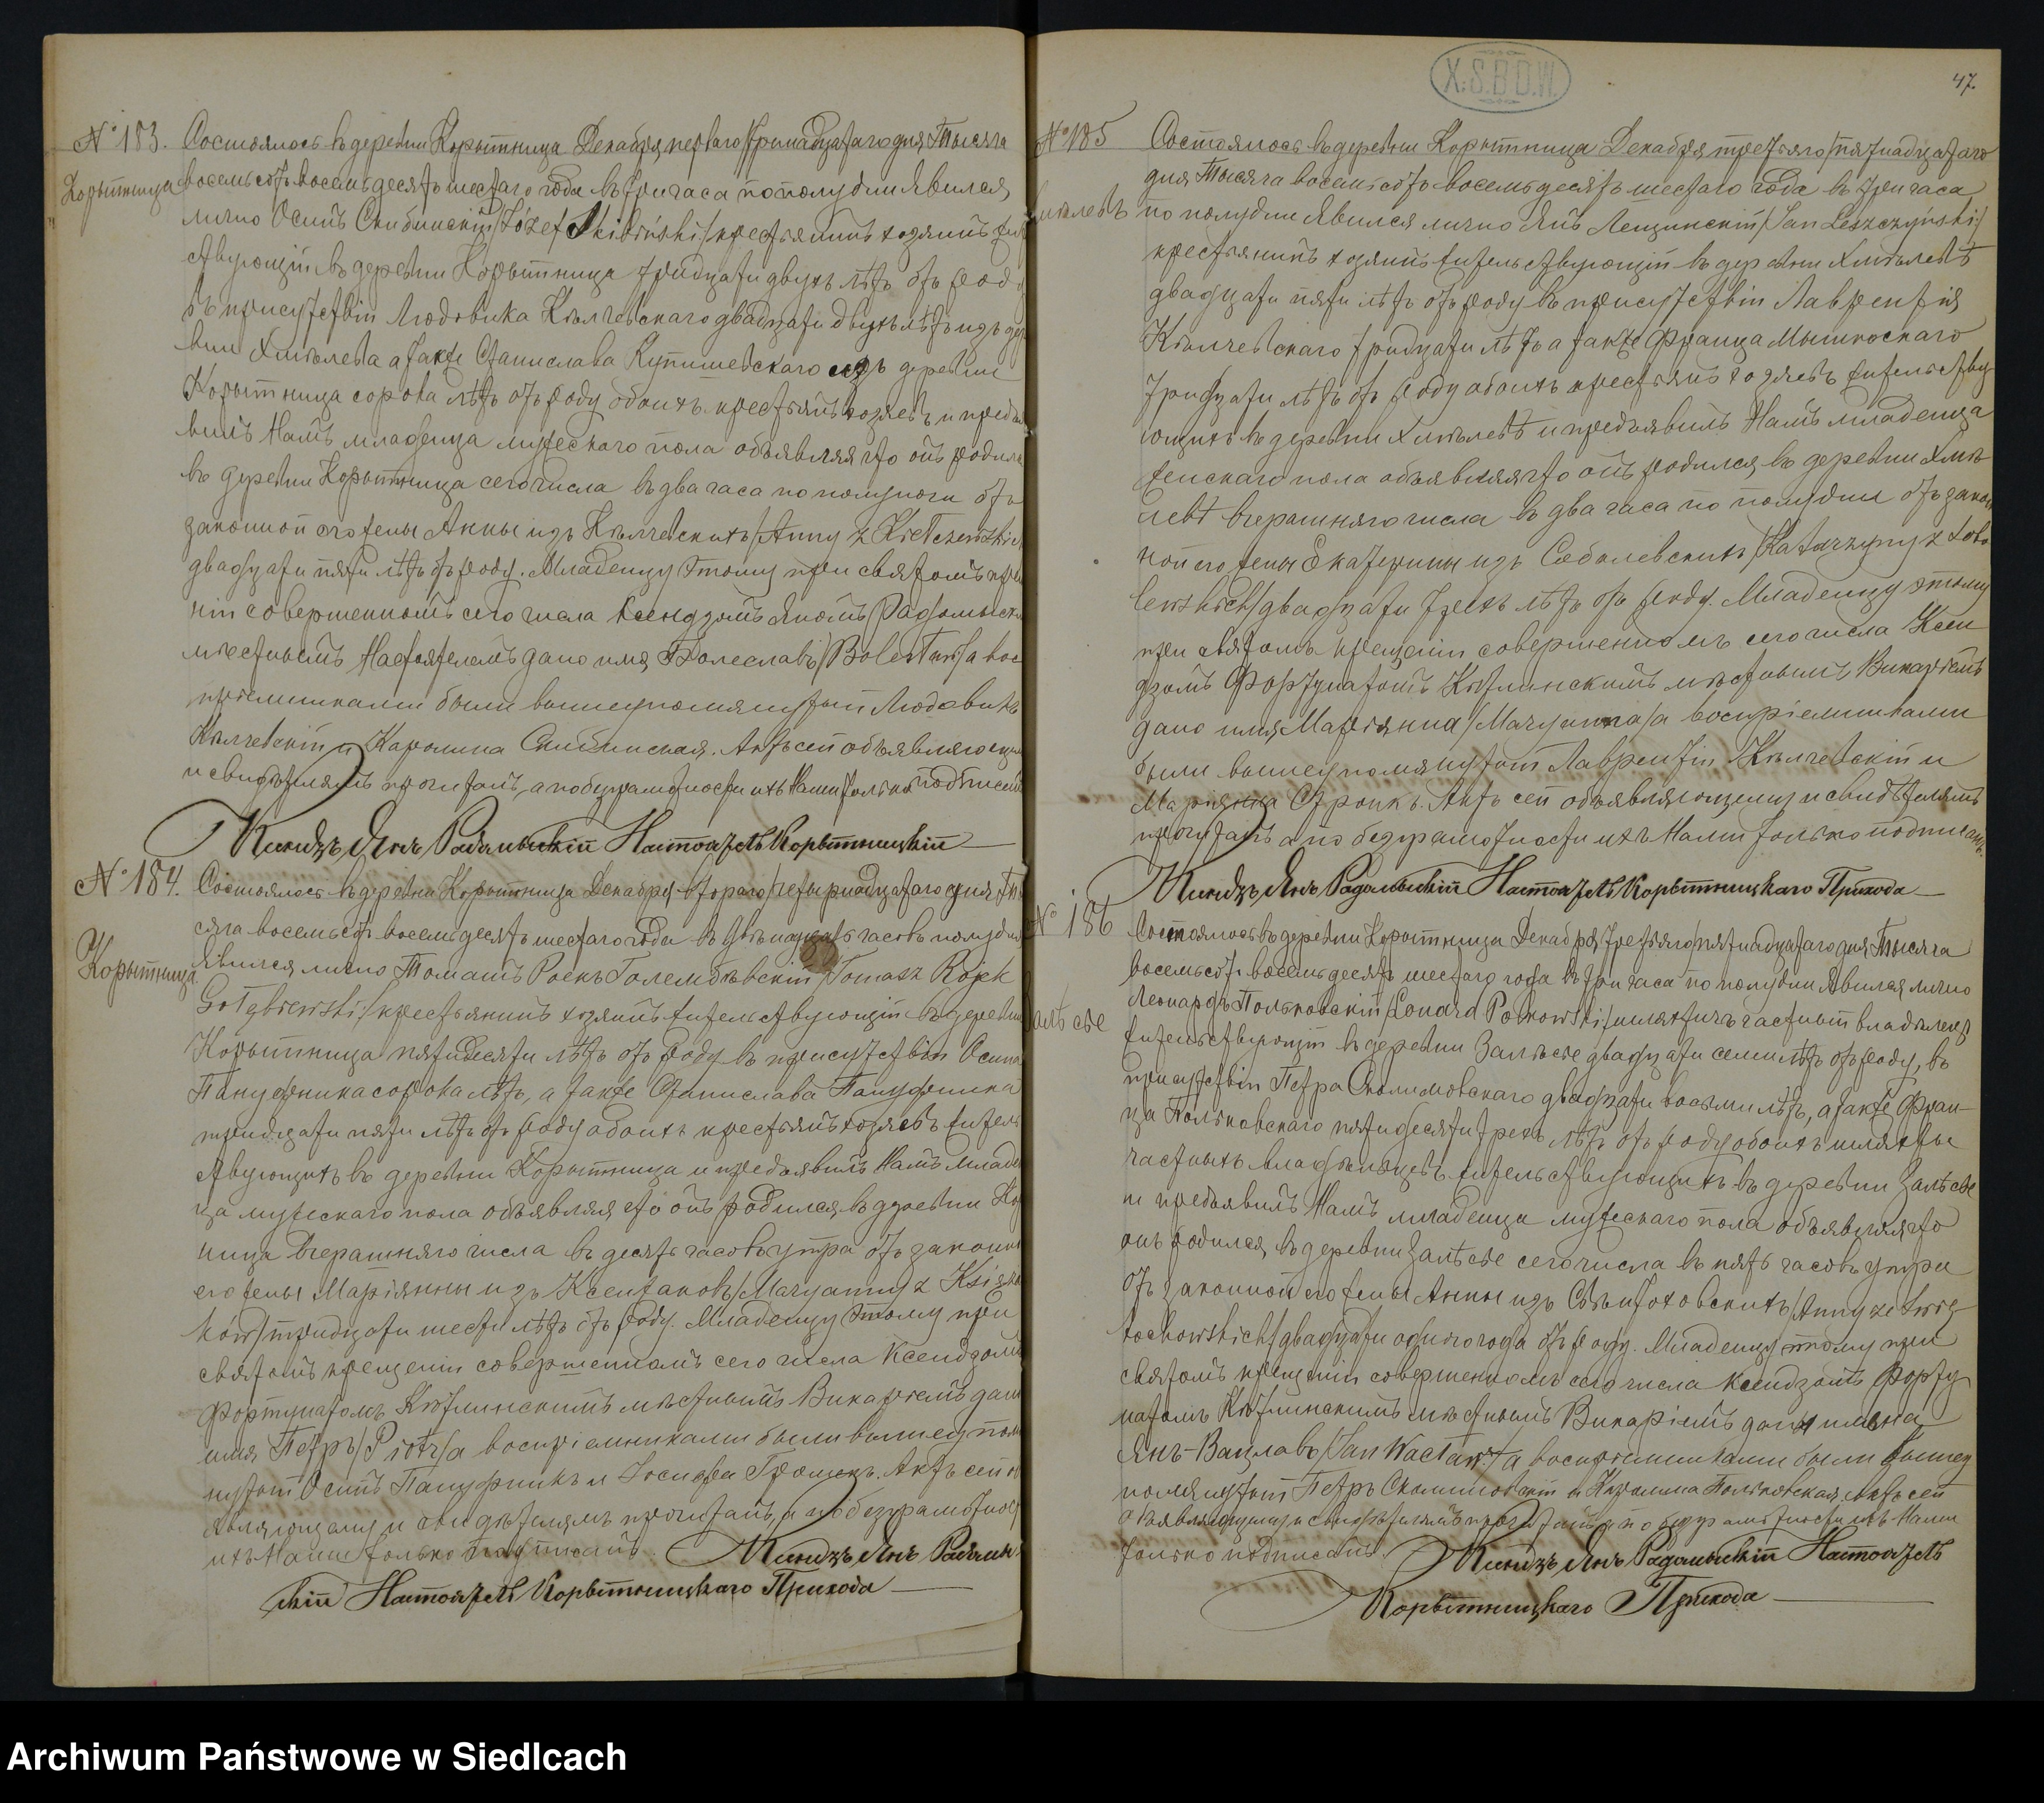 № 183. Состоялось въ деревни Корытница Декабря перваго/тринадцатаго дня Тысяча
Корытница восемьсотъ восемьдесятъ шестаго года въ три часа по полудни явился
лично Осипъ Скибинскій /Józef Skibiński/ крестьянинъ хозяинъ жи
ствующій въ деревни Корытница тридцати двухъ лѣтъ отъ роду
въ присутствіи Людовика Кѣлчевскаго двадцати двухъ лѣтъ изъ дер
вни Хмѣлева а также Станислава Купишевскаго изъ деревни
Корытница сорока лѣтъ отъ роду обоихъ крестьянъ хозяевъ и предъя
вилъ Намъ младенца мужескаго пола объявляя что онъ родилс
въ деревни Корытница сего числа въ два часа по полуночи отъ
законной его жены Анны изъ Кѣлчевскихъ /Anny z Kiełczewskich
двадцати пяти лѣтъ отъ роду. Младенцу этому при святомъ крещ
ніи совершенномъ сего числа Ксендзомъ Яномъ Радомыск
мѣстнымъ Настоятелемъ дано имя Болеславъ /Bolesław/ а вос
пріемниками были вышеупомянутый Людовикъ
Кѣлчевскій и Каролина Скибинская. Актъ сей объявляющему
и свидѣтелямъ прочитанъ, а по безграмотности ихъ Нами только подписанъ
Ксендзъ Янъ Радомыскій Настоятель Корытницкій
№ 184. Состоялось въ деревни Корытница Декабря втораго/четырнадцатаго дня Ты
сяча восемьсотъ восемьдесятъ шестаго года въ двѣнадцать часовъ полудня
Корытница. явился лично Томашъ Роекъ Голембѣвскій /Tomasz Rojek
Gołębiewski/ крестьянинъ хозяинъ жительствующій въ деревни
Корытница пятидесяти лѣтъ отъ роду въ присутствіи Осипа
Пануфника сорока лѣтъ, а также Станислава Пануфника
тридцати пяти лѣтъ отъ роду обоихъ крестьянъ хозяевъ житель
ствующихъ въ деревни Корытница и предъявилъ Намъ младен
ца мужескаго пола объявляя что онъ родился въ деревни Кор
ница вчерашняго числа въ десять часовъ утра отъ законн
его жены Маріянны изъ Ксенжаковъ /Maryanny z Księża
ków/ тридцати шести лѣтъ отъ роду. Младенцу этому при
святомъ крещеніи совершенномъ сего числа Ксендзомъ
Фортунатомъ Кѣтлинскимъ мѣстнымъ Викаріемъ дано
имя Петръ /Piotr/ а воспріемниками были вышеупом
нутый Осипъ Пануфникъ и Іосифа Громекъ. Актъ сей о
являющему и свидѣтелямъ прочитанъ, а по безграмотност
ихъ Нами только подписанъ. Ксендзъ Янъ Радомы
скій Настоятель Корытницкаго Прихода
47.
X.S.B.D.W.
№ 185 Состоялось въ деревни Корытница Декабря третьяго/пятнадцатаго
дня Тысяча восемьсотъ восемьдесятъ шестаго года въ три часа
мѣлевъ по полудни явился лично Янъ Лещинскій /Jan Leszczyński/
крестьянинъ хозяинъ жительствующій въ деревни Хмѣлевѣ
двадцати пяти лѣтъ отъ роду въ присутствіи Лаврентія
Кѣлчевскаго тридцати лѣтъ а также Франца Мышкоскаго
тридцати лѣтъ отъ роду обоихъ крестьянъ хозяевъ жительству
ющихъ въ деревни Хмѣлевѣ и предъявилъ Намъ младенца
женскаго пола объявляя что онъ родился въ деревни Хмѣ
левѣ вчерашняго числа въ два часа по полудни отъ закон
ной его жены Екатерины изъ Соболевскихъ /Katarzyny z Sobo
lewskich/ двадцати трехъ лѣтъ отъ роду. Младенцу этому
при святомъ крещеніи совершенномъ сего числа Ксен
дзомъ Фортунатомъ Кѣтлинскимъ мѣстнымъ Викаріемъ
дано имя Маріянна /Maryanna/ а воспріемниками
были вышеупомянутый Лаврентій Кѣлчевскій и
Маріянна Стронкъ. Актъ сей объявляющему и свидѣтелямъ
прочитанъ а по безграмотности ихъ Нами только подписанъ.
Ксендзъ Янъ Радомыскій Настоятель Корытницкаго Прихода
№ 186 Состоялось въ деревни Корытница Декабря третьяго/пятнадцатаго дня Тысяча
восемьсотъ восемьдесятъ шестаго года въ три часа по полудни явился лично
Леонардъ Польковскій /Leonard Polkowski/ шляхтичъ частный владѣлецъ
алѣсье жительствующій въ деревни Залѣсье двадцати семи лѣтъ отъ роду, въ
присутствіи Петра Сколимовскаго двадцати восьми лѣтъ, а также Фран-
ца Польковскаго пятидесяти трехъ лѣтъ отъ роду обоихъ шляхты
частныхъ владѣльцевъ жительствующихъ въ деревни Залѣсье
и предъявилъ Намъ младенца мужескаго пола объявляя что
онъ родился въ деревни Залѣсье сего числа въ пять часовъ утра
отъ законной его жены Анны изъ Свѣнтоховскихъ /Anny ze Świę
tochowskich/ двадцати одного года отъ роду. Младенцу этому при
святомъ крещеніи совершенномъ сего числа Ксендзомъ Форту
натомъ Кѣтлинскимъ мѣстнымъ Викаріемъ даны имена
Янъ-Вацлавъ /Jan Wacław/ а воспріемниками были вышеу
помянутый Петръ Сколимовскій и Каролина Польковская. Актъ сей
объявляющему и свидѣтелямъ прочитанъ а по безграмотности ихъ Нами
только подписанъ. Ксендзъ Янъ Радомыскій Настоятель
Корытницкаго Прихода
Archiwum Państwowe w Siedlcach